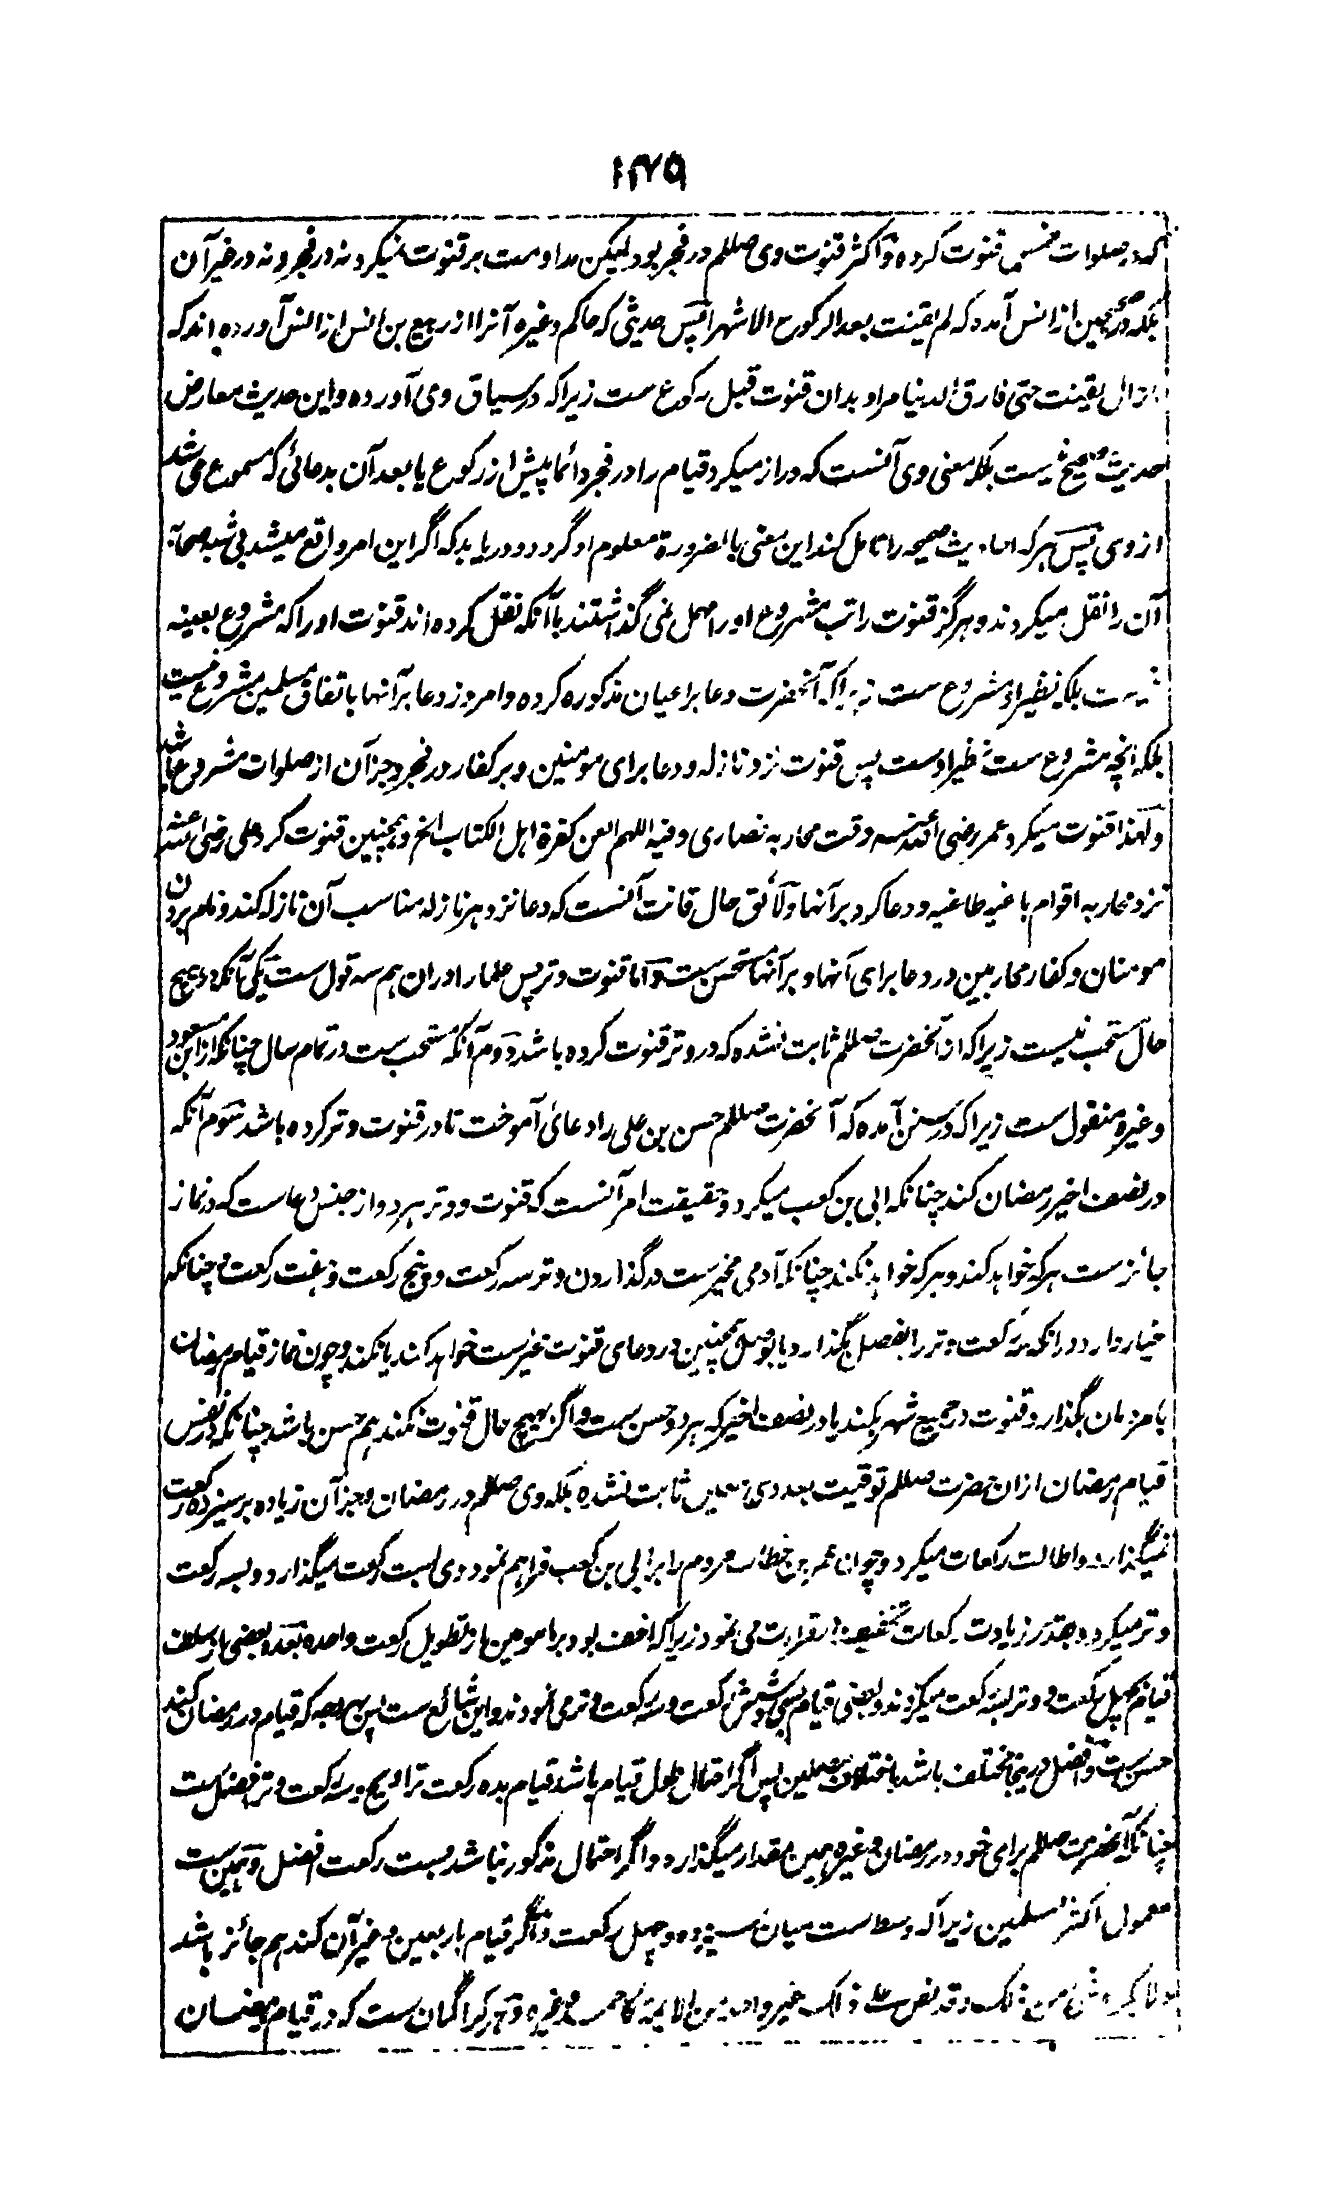 ۱۴۷۵
که در صلوات خمس قنوت کرده و اکثر قنوت وی صلعم در فجر بود لیکن مداومت بر قنوت نمیکرد نه در فجر و نه در غیر آن
بلکه در صحیحین از انس آمده که لم یقنت بعد الرکوع الا شهرا پس حدیثی که حاکم و غیره آنرا از ربیع بن انس از انس آورده اند که
مازال یقنت حتی فارق الدنیا مراد بدان قنوت قبل رکوع ست زیرا که در سیاق وی آورده و این حدیث معارض
حدیث صحیح نیست بلکه معنی وی آنست که دراز میکرد قیام را در فجر دائما پیش از رکوع یا بعد آن بدعائی که مسموع می شد
از وی پس هر که احادیث صحیحه را تامل کند این معنی بالضرورة معلوم او گردد و دریابد که اگر این امر واقع میشد بی شبه صحابه
آن را نقل میکردند و هرگز قنوت راتب مشروع او را مهمل نمی گذاشتند باآنکه نقل کرده اند قنوت او را که مشروع بعینه
نیست بلکه نظیر او مشروع ست زیراکه آنحضرت دعا بر اعیان مذکوره کرده و امروز دعا بر آنها باتفاق مسلمین مشروع نیست
بلکه انچه مشروع ست نظیر اوست پس قنوت نزد نازله و دعا برای مومنین و بر کفار در فجر و جز آن از صلوات مشروع باشد
و لهذا قنوت میکرد عمر رضی الله عنه وقت محاربه نصاری و فیه اللهم العن کفرة اهل الکتاب الخ و همچنین قنوت کرد علی رضی الله عنه
نزد محاربه اقوام باغیه طاغیه و دعا کرد بر آنها و لائق حال قانت آنست که دعا نزد هر نازله مناسب آن نازله کند و نام بردن
مومنان و کفار محاربین در دعا برای آنها و بر آنها مستحسن ست و اما قنوت وتر پس علما را دران هم سه قول ست یکی آنکه در هیچ
حال مستحب نیست زیرا که از آنحضرت صلعم ثابت نشده که در وتر قنوت کرده باشد دوم آنکه مستحب ست در تمام سال چنانکه از ابن مسعود
و غیره منقول ست زیرا که در سنن آمده که آنحضرت صلعم حسن بن علی را دعائی آموخت تا در قنوت وتر کرده باشد سوم آنکه
در نصف اخیر رمضان کند چنانکه ابی بن کعب میکرد و حقیقت امر آنست که قنوت وتر هر دو از جنس دعاست که در نماز
جائز ست هر که خواهد کند و هر که خواهد نکند چنانکه آدمی مخیر ست در گذاردن وتر سه رکعت و پنج رکعت و هفت رکعت و چنانکه
خیار دارد در آنکه سه رکعت وتر را بفصل بگذارد یا بوصل همچنین در دعای قنوت مخیرست خواهد کند یا نکند و چون نماز قیام رمضان
با مردمان بگذارد قنوت در جمیع شهر بکند یا در نصف اخیر که هر دو حسن ست و اگر بهیچ حال قنوت نکند هم حسن باشد چنانکه در نفس
قیام رمضان از ان حضرت صلعم توقیت بعددی معین ثابت نشده بلکه وی صلعم در رمضان و جز آن زیاده بر سیزده رکعت
نمیگذارد و اطالت رکعات میکرد و چون عمر بن خطاب مردم را بر ابی بن کعب فراهم نمود وی بست رکعت میگذارد و بسه رکعت
وتر میکرد و بقدر زیادت رکعات تخفیف در قراءت می نمود زیراکه اخف بود بر مامومین از تطویل رکعت واحده بعده بعضی از سلف
قیام بچهل رکعت و وتر بسه رکعت میکردند و بعضی قیام بسی و شش رکعت و سه رکعت وتر می نمودند و این شائع ست پس بهر وجه که قیام در رمضان کند
حسن ست و افضل درینجا مختلف باشد باختلاف مصلین پس اگر احتمال طول قیام باشد قیام بده رکعت تراویح و سه رکعت وتر افضل ست
چنانکه آنحضرت صلعم برای خود در رمضان و غیره همین مقدار میگذارد و اگر احتمال مذکور نباشد بست رکعت افضل و همین ست
معمول اکثر مسلمین زیراکه وسط ست میان سیزده و چهل رکعت و اگر قیام باربعین و غیر آن کند هم جائز باشد
و لا یکره شئ من ذلک و قد نص علی ذلک غیر واحد من الایمة کاحمد و غیره و هر کرا گمان ست که در قیام رمضان